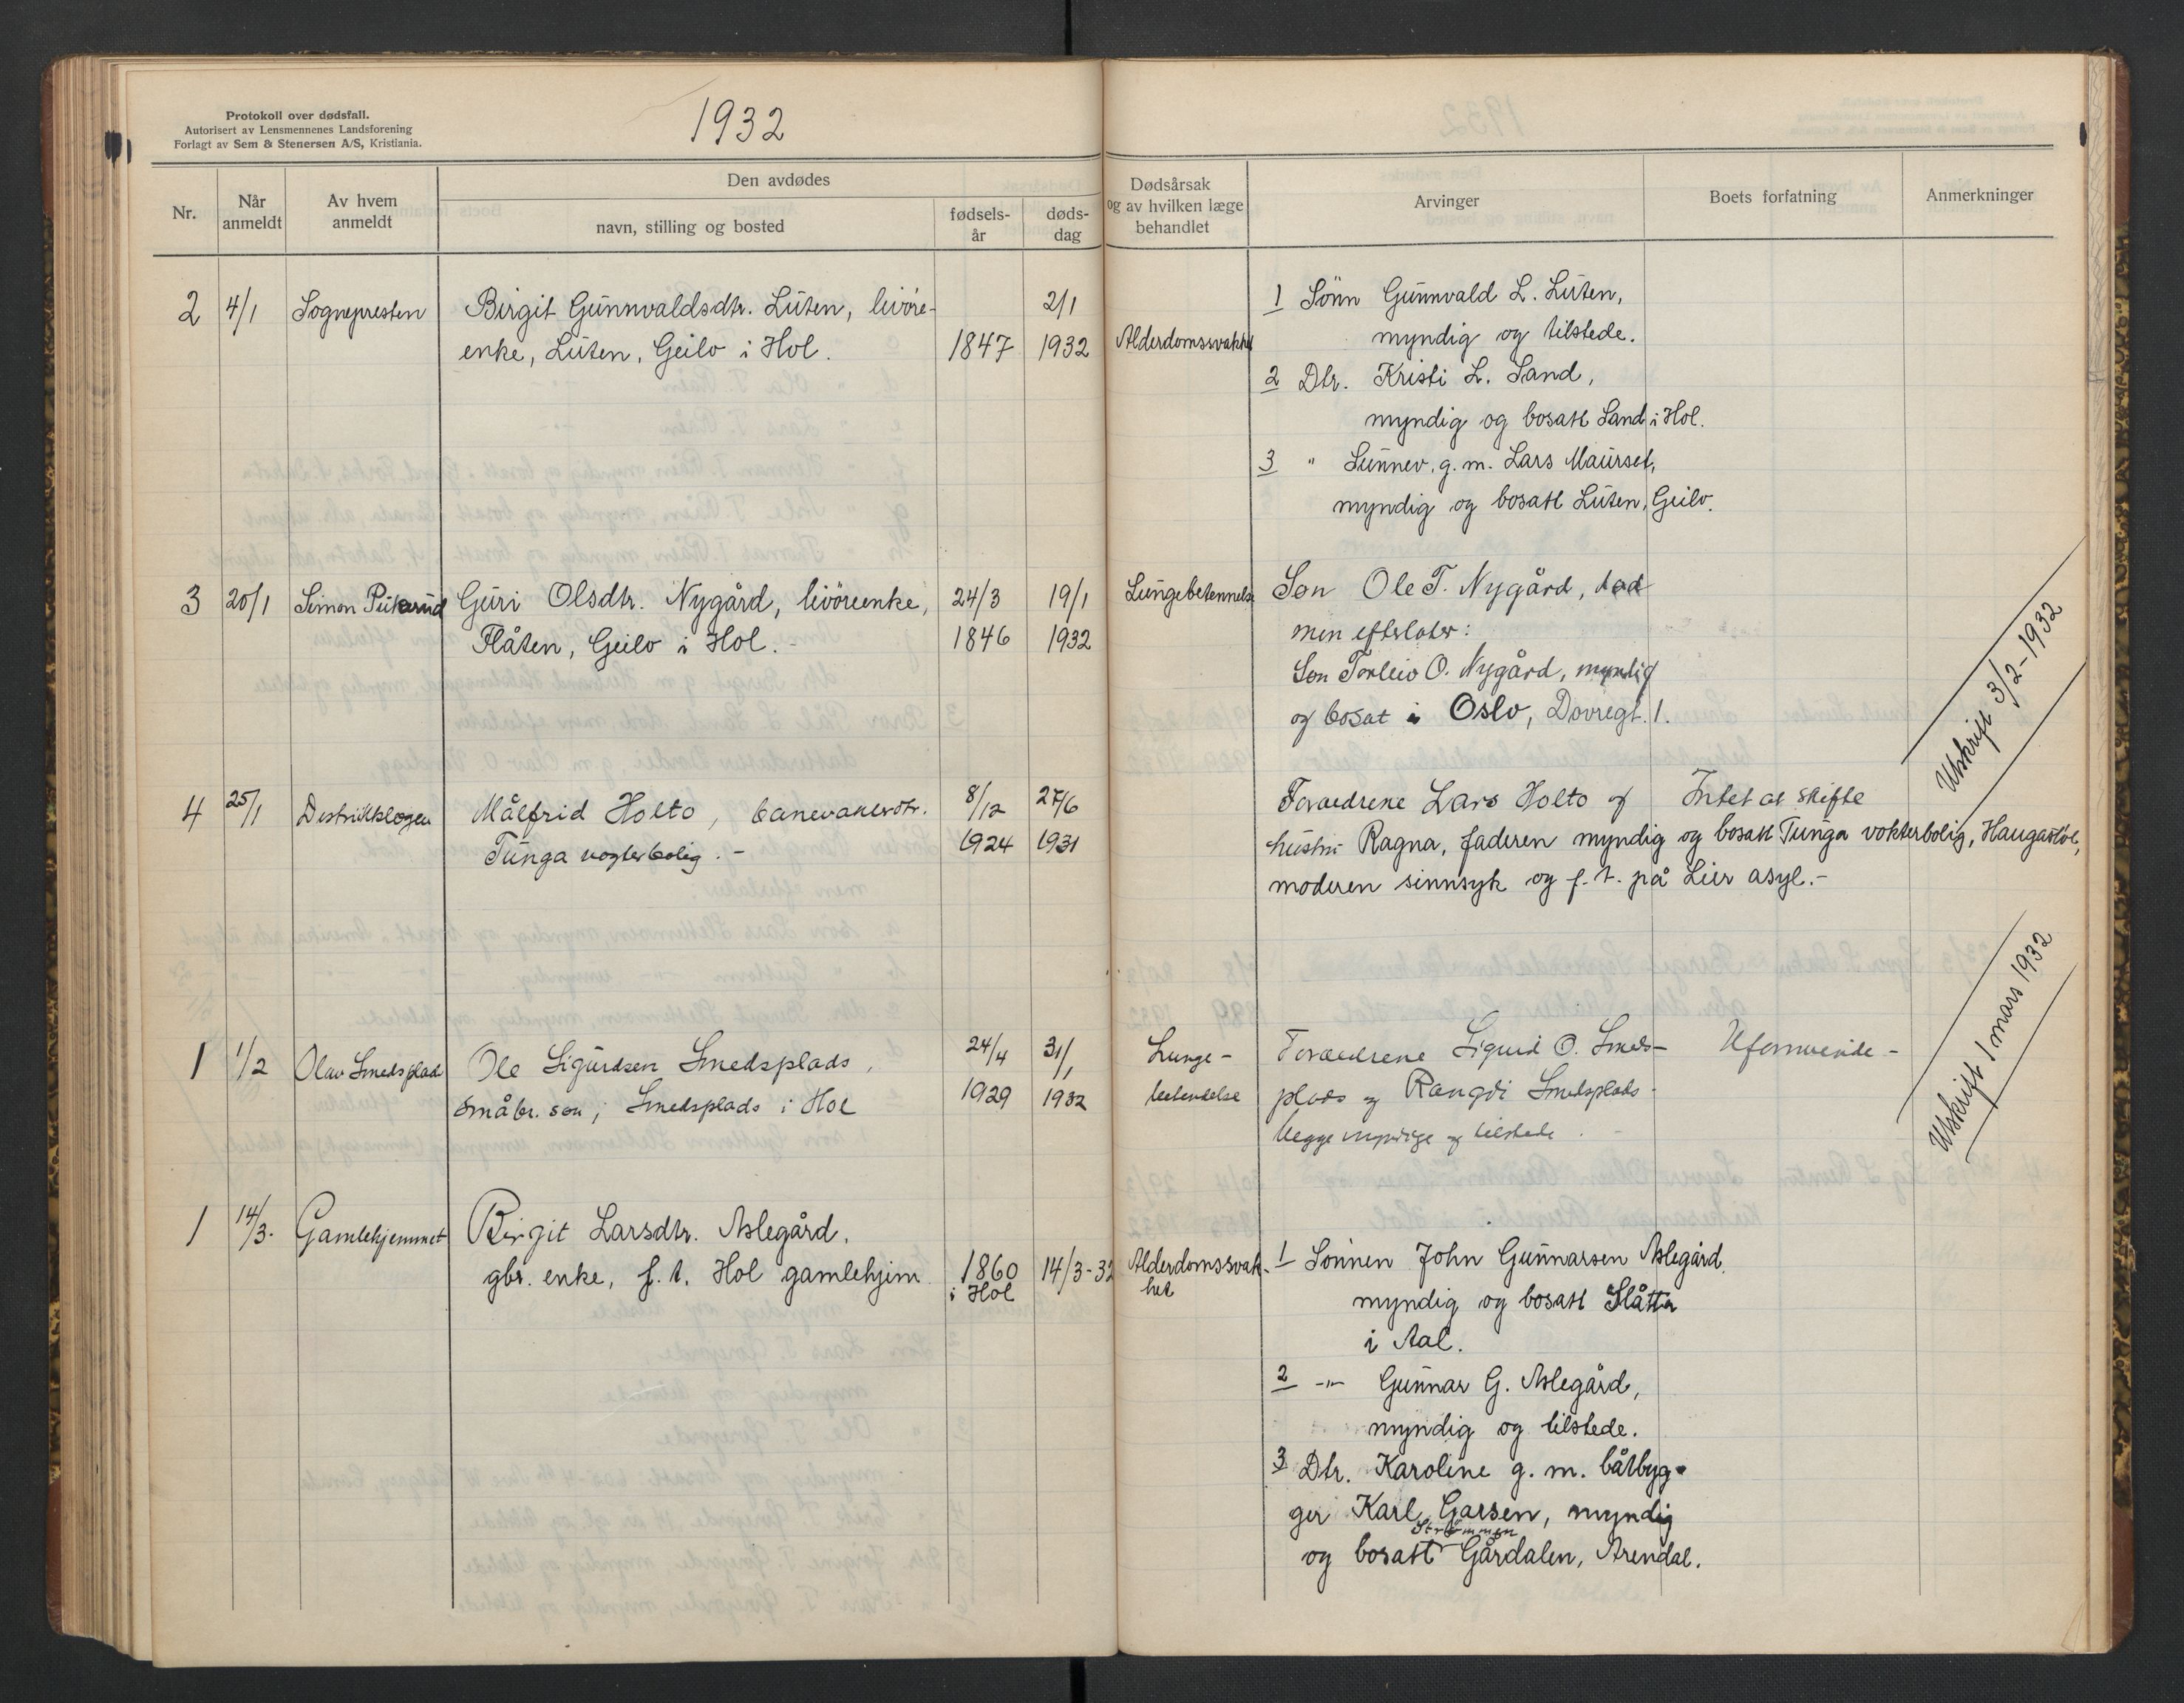 Protokoll over dødsfall.
Autorisert av Lensmennenes Landsforening
Forlagt av Sem & Stenersen A/S, Kristiania.
1932
Nr.
Når anmeldt
Av hvem anmeldt
Den avdødes
navn, stilling og bosted
fødsels-år
døds-dag
Dødsårsak
og av hvilken læge
behandlet
Arvinger
Boets forfatning
Anmerkninger
2 4/1 Sognepresten Birgit Gunnvaldsdtr. Luten, livøre- 2/1
enke, Luten, Geilo i Hol. 1847 1932 Alderdomssvakhet
1 Sönn Gunnvald L. Luten,
myndig og tilstede.
2 Dtr. Kristi L. Sand,
myndig og bosatt Sand i Hol.
3 " Sunnev, g. m. Lars Maurset,
myndig og bosatt Luten, Geilo.
3 20/1 Simon Guri Olsdtr. Nygård, livöreenke, 24/3 19/1 Lungebetennelse
Flåten, Geilo i Hol. - 1846 1932
Søn Ole T. Nygård, død
men efterlater:
Søn Torleiv O. Nygård, myndig
og bosat i Oslo, Dovregt. 1.
Utskrift 3/2-1932
4 25/1 Distriktslægen Målfrid Holto, banevakterdtr. 8/12 27/6
Tunga vogterbolig. - 1924 1931
Forældrene Lars Holto og Intet at skifte
hustru Ragna, faderen myndig og bosatt Tunga vokterbolig, Haugastøl,
moderen sinnsyk og f. t. på Lier asyl. -
1 1/2 Olav Smedsplad Ole Sigurdsen Smedsplads, 24/4 31/1 Lunge-
småbr. søn, Smedsplads i Hol 1929 1932 betendelse
Forældrene Sigurd O. Smeds- Uformuende -
plads og Rangdi Smedsplads -
begge myndige og tilstede. -
Utskrift 1 mars 1932
1 14/3. Gamlehjemmet Birgit Larsdtr. Aslegård.
gbr. enke, f. t. Hol gamlehjem 1860 i Hol 14/3-32 Alderdomssvak-
het
1 Sönnen John Gunnarsen Aslegård.
myndig og bosatt Slåtta
i Aal.
2 -"- Gunnar G. Aslegård,
myndig og tilstede.
3 Dtr. Karoline g. m. båtbyg-
ger Karl Garsen, myndig
Strømmen
og bosatt Gårdalen, Arendal.